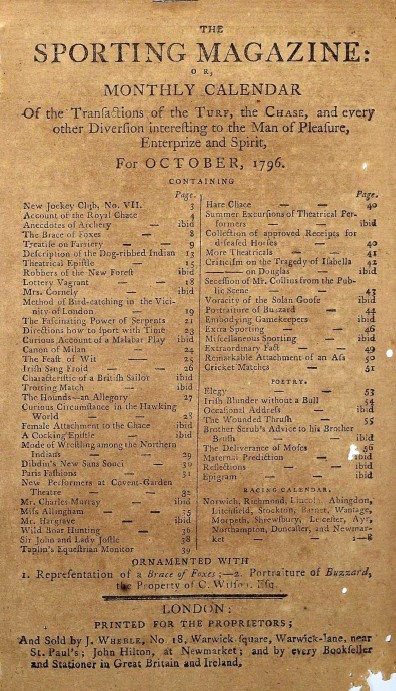 THE
SPORTING MAGAZINE:
OR,
MONTHLY CALENDAR
Of the Tranſactions of the TURF, the CHASE, and every
other Diverſion intereſting to the Man of Pleaſure,
Enterprize and Spirit,
For OCTOBER, 1796.
CONTAINING
Page.
New Jockey Club, No. VII. 3
Account of the Royal Chace 4
Anecdotes of Archery — ibid
The Brace of Foxes — 8
Treatiſe on Farriery — — 9
Deſcription of the Dog-ribbed Indian 13
Theatrical Epiſtle — 15
Robbers of the New Foreſt ibid
Lottery Vagrant — — 18
Mrs. Cornely — ibid
Method of Bird-catching in the Vici-
nity of London 19
The Faſcinating Power of Serpents 21
Directions how to ſport with Time 23
Curious Account of a Malabar Play ibid
Canon of Milan — 24
The Feaſt of Wit — — 25
Iriſh Sang Froid — — 26
Characteriſtic of a Britiſh Sailor ibid
Trotting Match — — ibid
The Hounds—an Allegory 27
Curious Circumſtance in the Hawking
World — — 28
Female Attachment to the Chace ibid
A Cocking Epiſtle — ibid
Mode of Wreſtling among the Northern
Indians — — 29
Dibdin's New Sans Souci — 30
Paris Faſhions — 31
New Performers at Covent-Garden
Theatre — — 32
Mr. Charles Murray — ibid
Miſs Allingham — — 35
Mr. Hargrave — ibid
Wild Boar Hunting — 36
Sir John and Lady Joſtle 38
Taplin's Equeſtrian Monitor 39
Page.
Hare Chace — — 40
Summer Excurſions of Theatrical Per-
formers — — ibid
Collection of approved Receipts for
diſeaſed Horſes — — 40
More Theatricals — 41
Criticiſm on the Tragedy of Iſabella 42
— on Douglas — ibid
Seceſſion of Mr. Collins from the Pub-
lic Scene — — 43
Voracity of the Solan Gooſe ibid
Portraiture of Buzzard — 44
Embodying Gamekeepers ibid
Extra Sporting — — 46
Miſcellaneous Sporting — ibid
Extraordinary Fact — 49
Remarkable Attachment of an Aſs 50
Cricket Matches — 51
POETRY.
Elegy — — 53
Iriſh Blunder without a Bull 54
Occaſional Addreſs — ibid
The Wounded Thruſh — 55
Brother Scrub's Advice to his Brother
Bruſh — — ibid
The Deliverance of Moſes 56
Maternal Prediction — ibid
Reflections — — ibid
Epigram — — ibid
RACING CALENDAR.
Norwich, Richmond, Lincoln, Abingdon,
Litchfield, Stockton, Barnet, Wantage,
Morpeth, Shrewſbury, Leiceſter, Ayr,
Northampton, Doncaſter, and Newmar-
ket — — 1—8
ORNAMENTED WITH
1. Repreſentation of a Brace of Foxes;—2. Portraiture of Buzzard,
the Property of C. Wilſon, Eſq.
LONDON:
PRINTED FOR THE PROPRIETORS;
And Sold by J. WHEBLE, No. 18, Warwick-ſquare, Warwick-lane, near
St. Paul's; John Hilton, at Newmarket; and by every Bookſeller
and Stationer in Great Britain and Ireland.